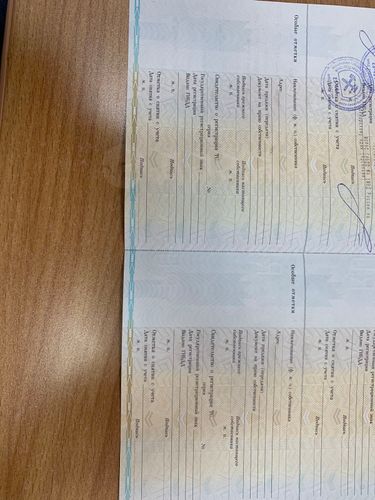 Дата регистрации
Отметка о снятии с учета
Дата снятия с учета
М. П.
Подпись
Особые отметки
Наименование (ф. и. о.) собственника
Адрес
Дата продажи (передачи)
Документ на право собственности
Подпись прежнего
собственника
Подпись настоящего
собственника
М. П.
М. П.
Свидетельство о регистрации ТС
серия
№
Государственный регистрационный знак
Дата регистрации
Выдано ГИБДД
М. П.
Подпись
Отметка о снятии с учета
Дата снятия с учета
М. П.
Подпись
Государственный регистрационный знак
Дата регистрации
Выдано ГИБДД
М. П.
Подпись
Отметка о снятии с учета
Дата снятия с учета
М. П.
Подпись
Особые отметки
Наименование (ф. и. о.) собственника
Адрес
Дата продажи (передачи)
Документ на право собственности
Подпись прежнего
собственника
Подпись настоящего
собственника
М. П.
М. П.
Свидетельство о регистрации ТС
серия
№
Государственный регистрационный знак
Дата регистрации
Выдано ГИБДД
М. П.
Подпись
Отметка о снятии с учета
Дата снятия с учета
М. П.
Подпись